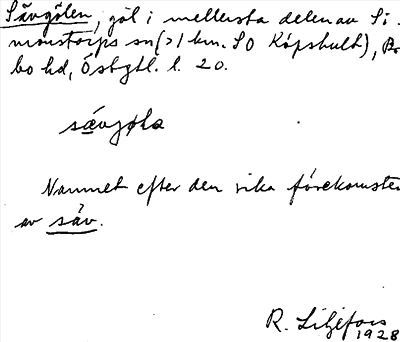 Sävgölen, göl i mellersta delen av Si-
monstorps sn (>1 km. SO Köpshult), Bo-
bo hd, Östgtl. l. 20.
sävjøla
Namnet efter den rika förekomsten
av säv.
R. Liljefors
1928